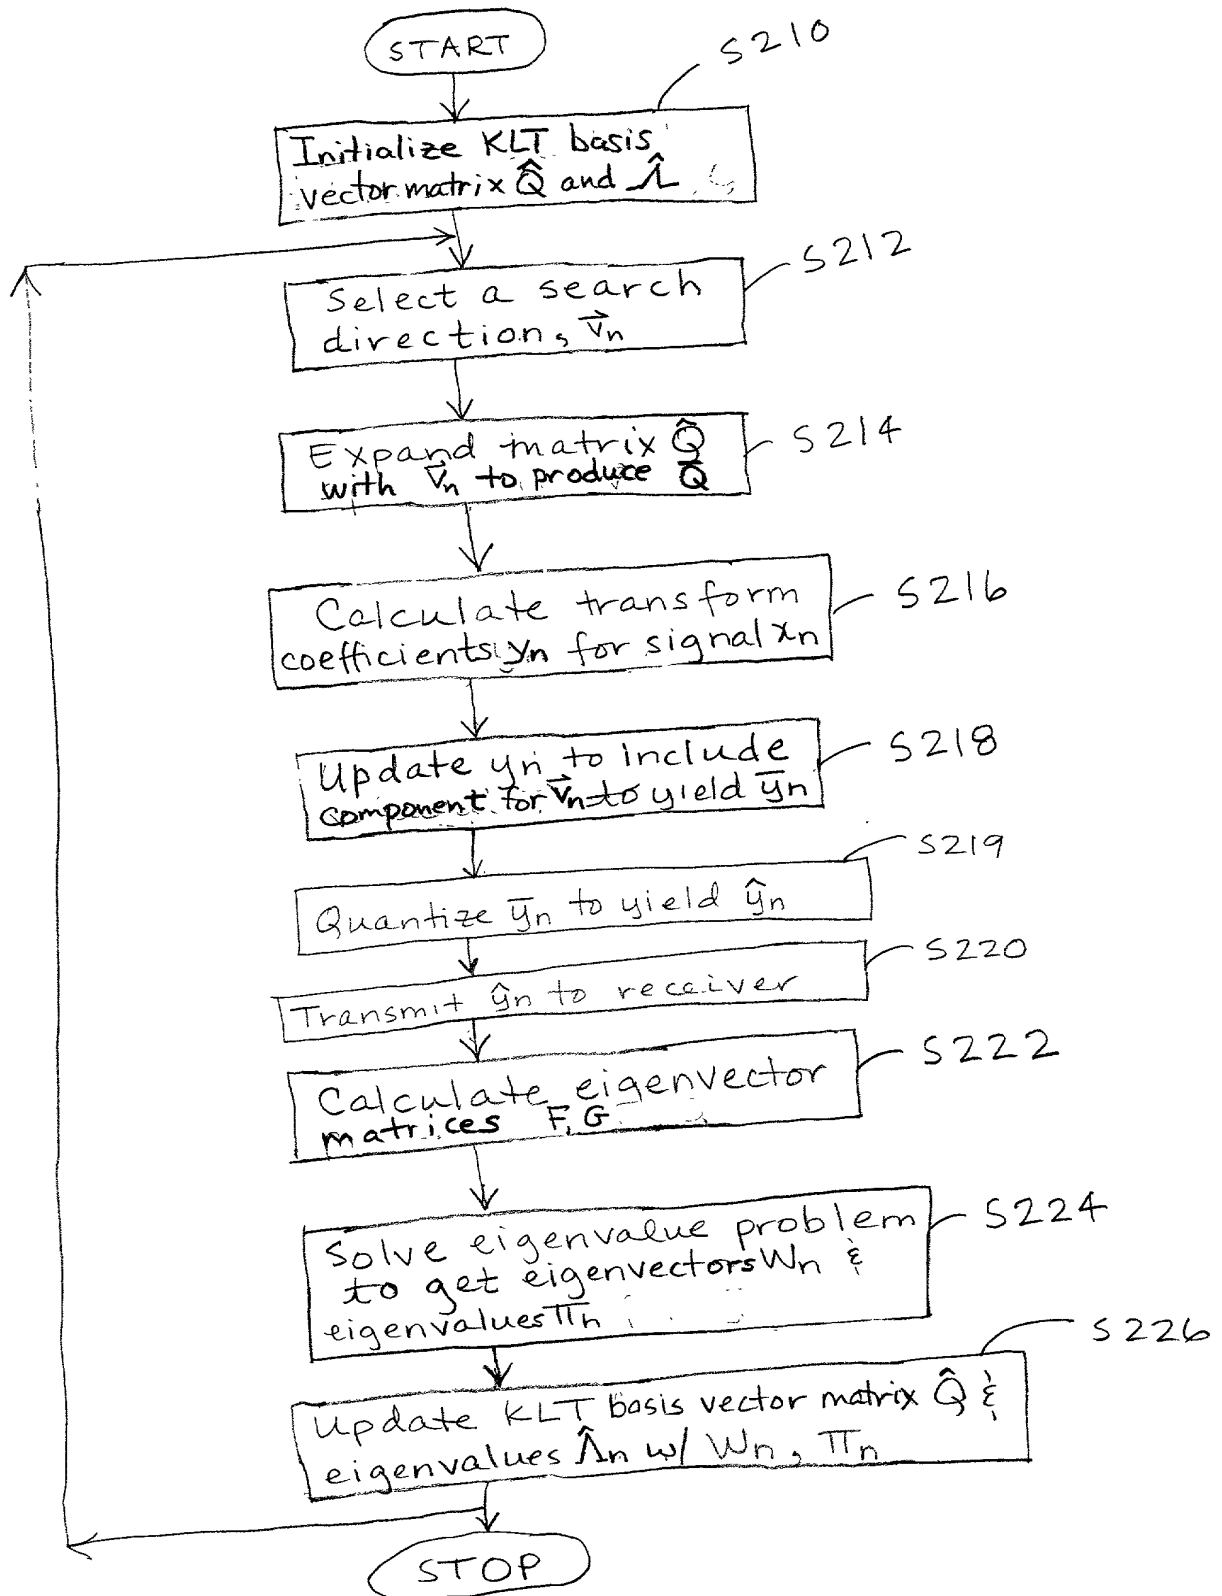 START
S210
Initialize KLT basis
vector matrix Q̂ and Λ̂
S212
Select a search
direction, v⃗n
S214
Expand matrix Q̂
with v⃗n to produce Q̄
S216
Calculate transform
coefficients yn for signal xn
S218
Update yn to include
component for v⃗n to yield ȳn
S219
Quantize ȳn to yield ŷn
S220
Transmit ŷn to receiver
S222
Calculate eigenvector
matrices F, G
S224
Solve eigenvalue problem
to get eigenvectors Wn &
eigenvalues Πn
S226
Update KLT basis vector matrix Q̂ &
eigenvalues Λ̂n w/ Wn, Πn
STOP